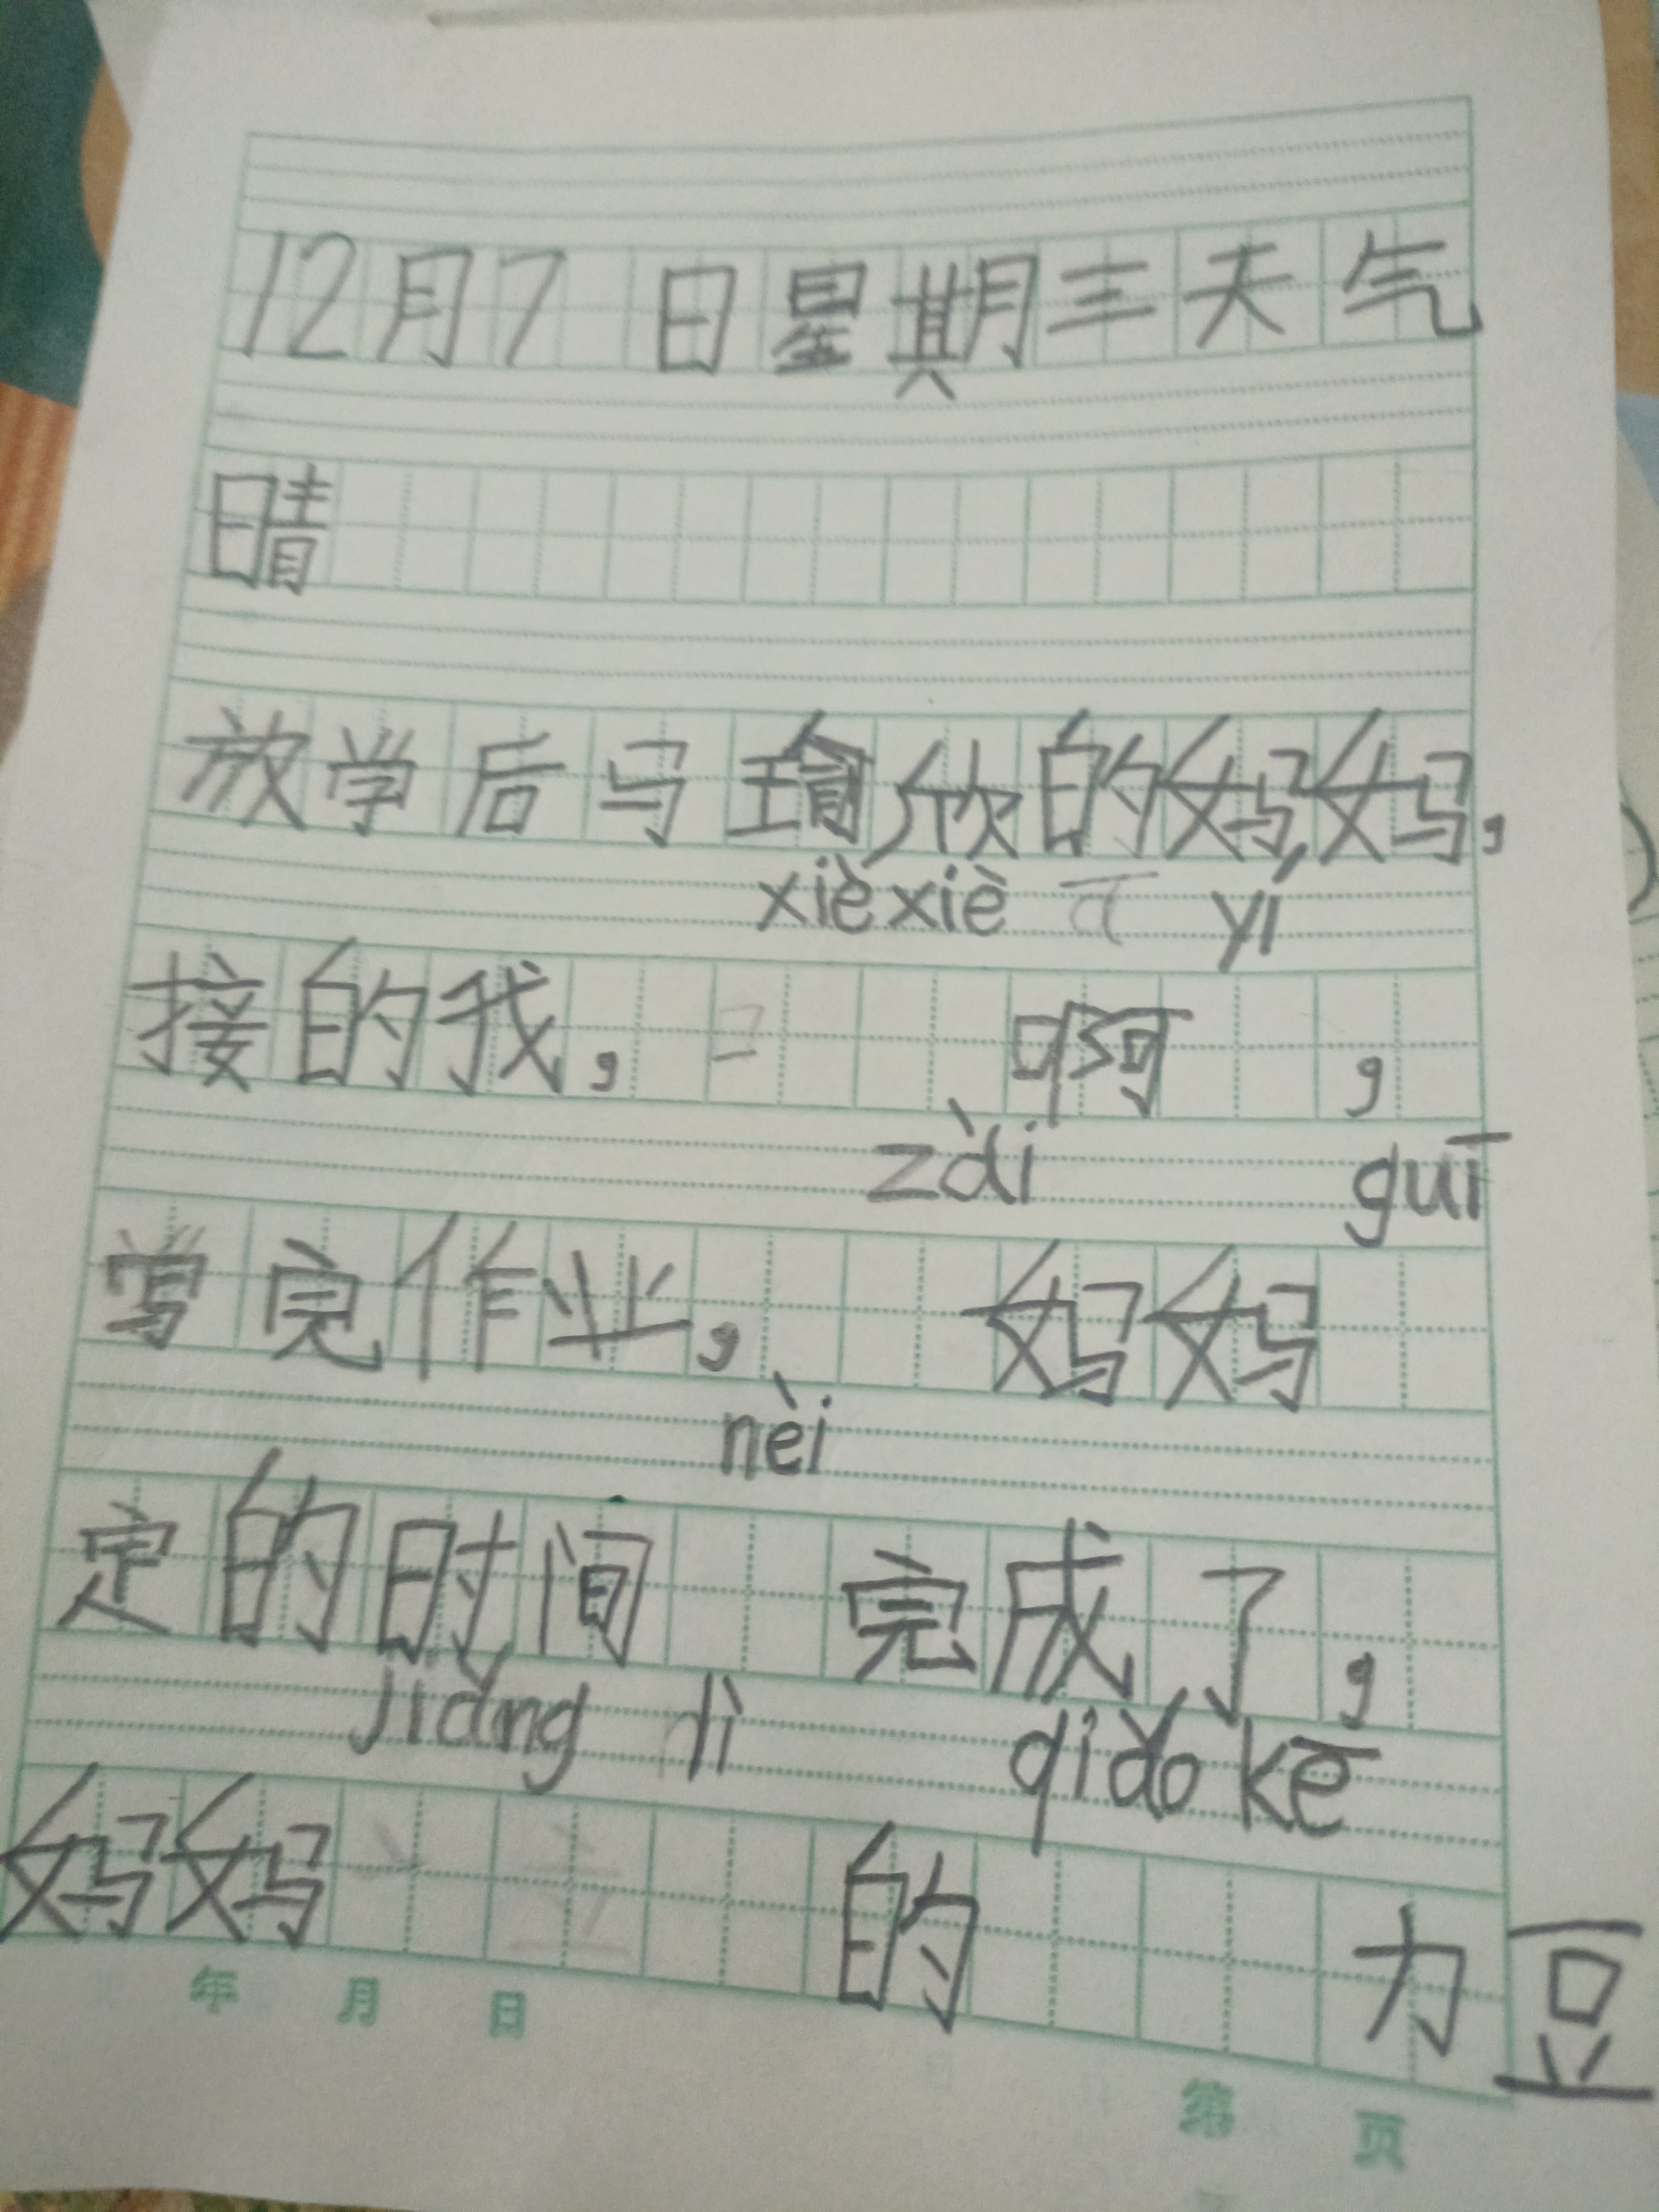 12月7日星期三天气
晴
放学后马瑜欣的妈妈,
xièxiè yí
接的我, 啊 ,
zài guī
写完作业, 妈妈
nèi
定的时间 完成了,
jiǎng lì qiǎo kē
妈妈 的 力豆
年 月 日
第 页